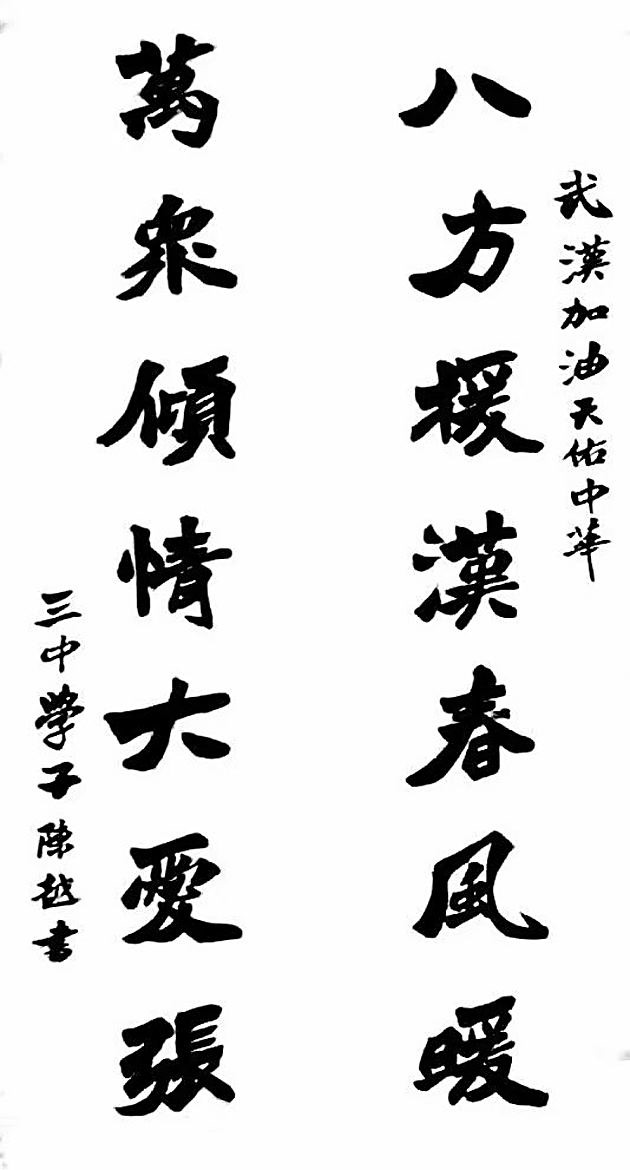 武漢加油天佑中華
八方援漢春風暖
萬衆傾情大愛張
三中學子陳越書